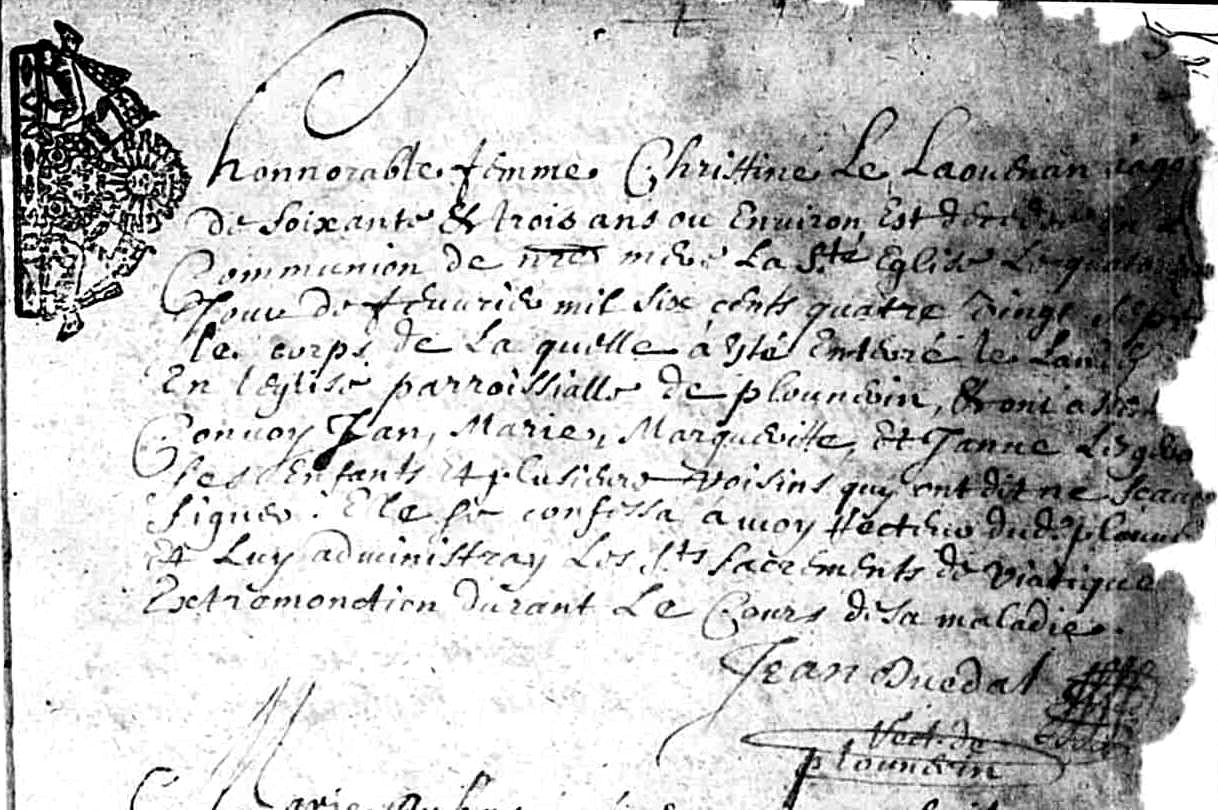 honnorable femme Christine Le Laouenan aage
de soixante & trois ans ou Environ, Est decedee en
Communion de nre mere La Ste Eglise Le
Jour de feuurier mil six cents quatre vingt sept
le corps de La quelle a esté Enterré le
En l'eglise parroissialle de plounevin, & ont assisté
Conuoy Jan, Marie, Margueritte, et Janne
ses Enfants et plusieurs voisins quy ont dit ne scauoir
signer. Elle se confessa a moy Recteur dud.
et Luy administray Les Sts sacrements de viatique
Extremonction durant Le Cours de sa maladie.
Jean Quedal
Rect. de
plounevin
Marie